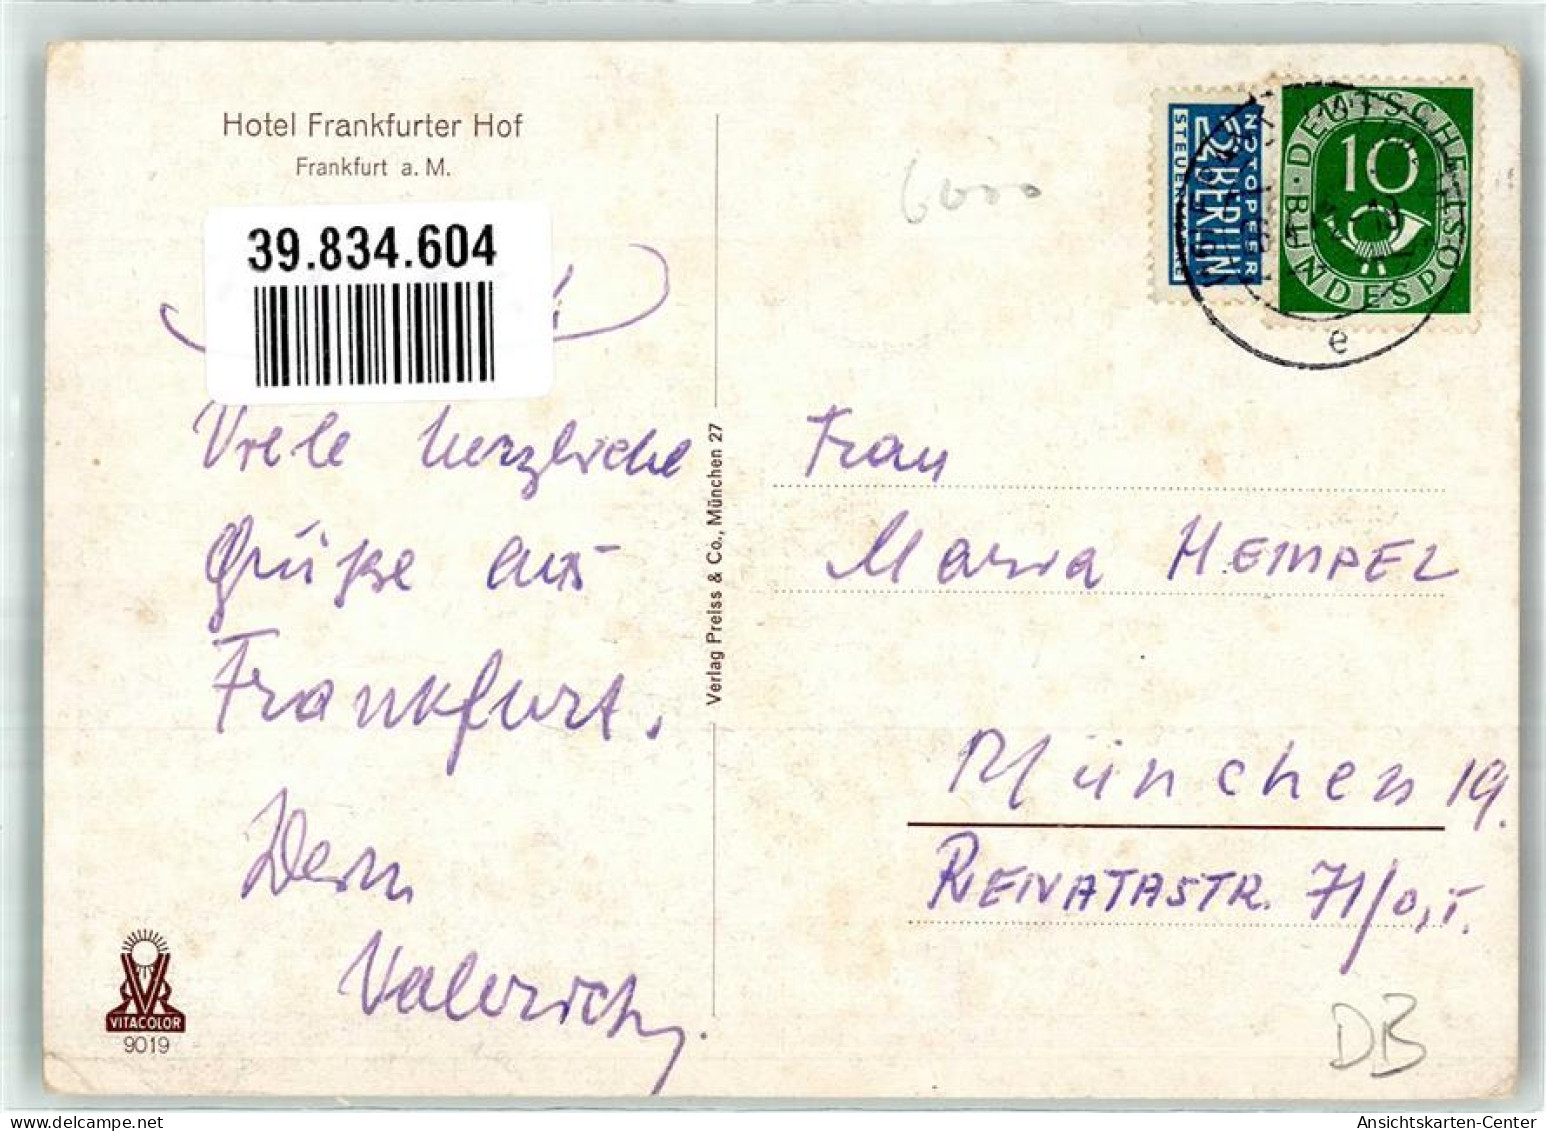 Hotel Frankfurter Hof
Frankfurt a. M.
39.834.604
Viele herzliche
Grüße aus
Frankfurt.
Dein
Verlag Preiss & Co., München 27
VITACOLOR
9019
6000
2 BERLIN
NOTOPFER
STEUERMARKE
DEUTSCHE BUNDESPOST
10
e
Frau
Maria HEMPEL
München 19.
RENATASTR. 71/0, I.
DB
Ansichtskarten-Center